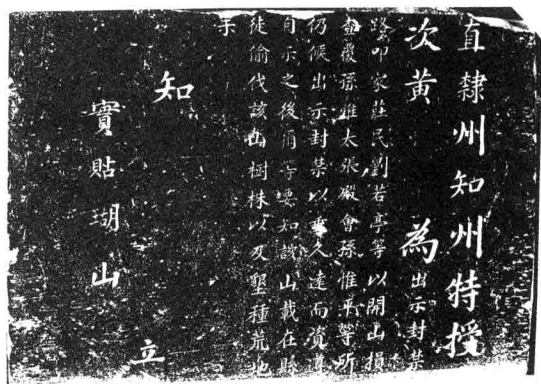 直隸州知州特授
次黃 為出示封禁
路叩家莊民劉若亭等以開山損
盡覆孫維太張殿會孫惟平等所
仍候出示封禁以垂久遠而資遵
自示之後爾等要知該山載在縣
徒偷伐該山樹株以及墾種荒地
示
知
實貼瑚山
立